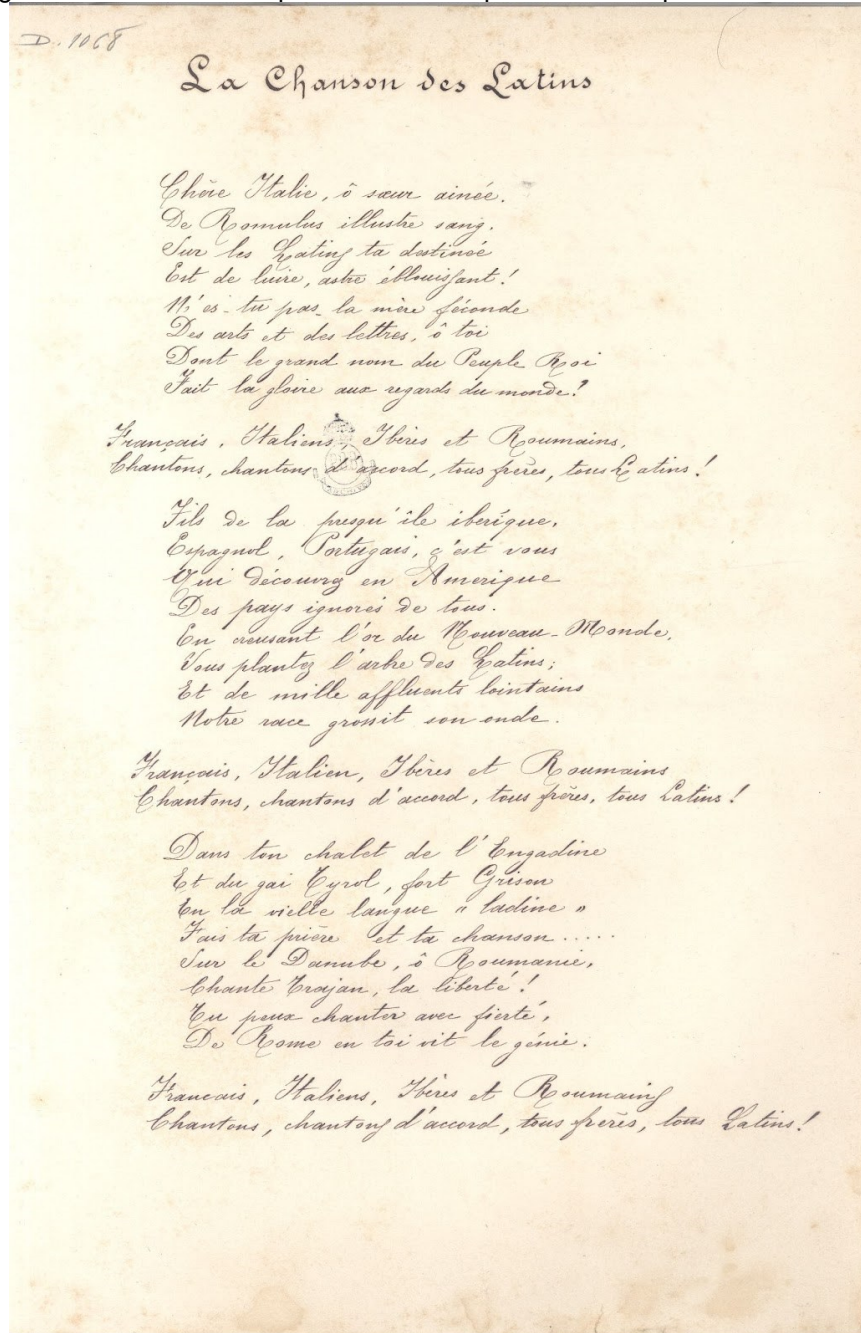 D. 1068
La Chanson des Latins
Chère Italie, ô sœur ainée.
De Romulus illustre sang.
Sur les Latins ta destinée
Est de luire, astre éblouissant!
N'es-tu pas la mère féconde
Des arts et des lettres, ô toi
Dont le grand nom du Peuple Roi
Fait la gloire aux regards du monde?
Français, Italiens, Ibères et Roumains,
Chantons, chantons d'accord, tous frères, tous Latins!
Fils de la presqu'île iberique,
Espagnol, Portugais, c'est vous
Qui découvrez en Amerique
Des pays ignorés de tous.
En creusant l'or du Nouveau-Monde,
Vous plantez l'arbre des Latins;
Et de mille affluents lointains
Notre race grossit son onde.
Français, Italien, Ibères et Roumains
Chantons, chantons d'accord, tous frères, tous Latins!
Dans ton chalet de l'Engadine
Et du gai Tyrol, fort Grison
En la vielle langue "ladine"
Fais ta prière et ta chanson.....
Sur le Danube, ô Roumanie,
Chante Trajan, la liberté!
Tu peux chanter avec fierté,
De Rome en toi vit le génie.
Francais, Italiens, Ibères et Roumains
Chantons, chantons d'accord, tous frères, tous Latins!